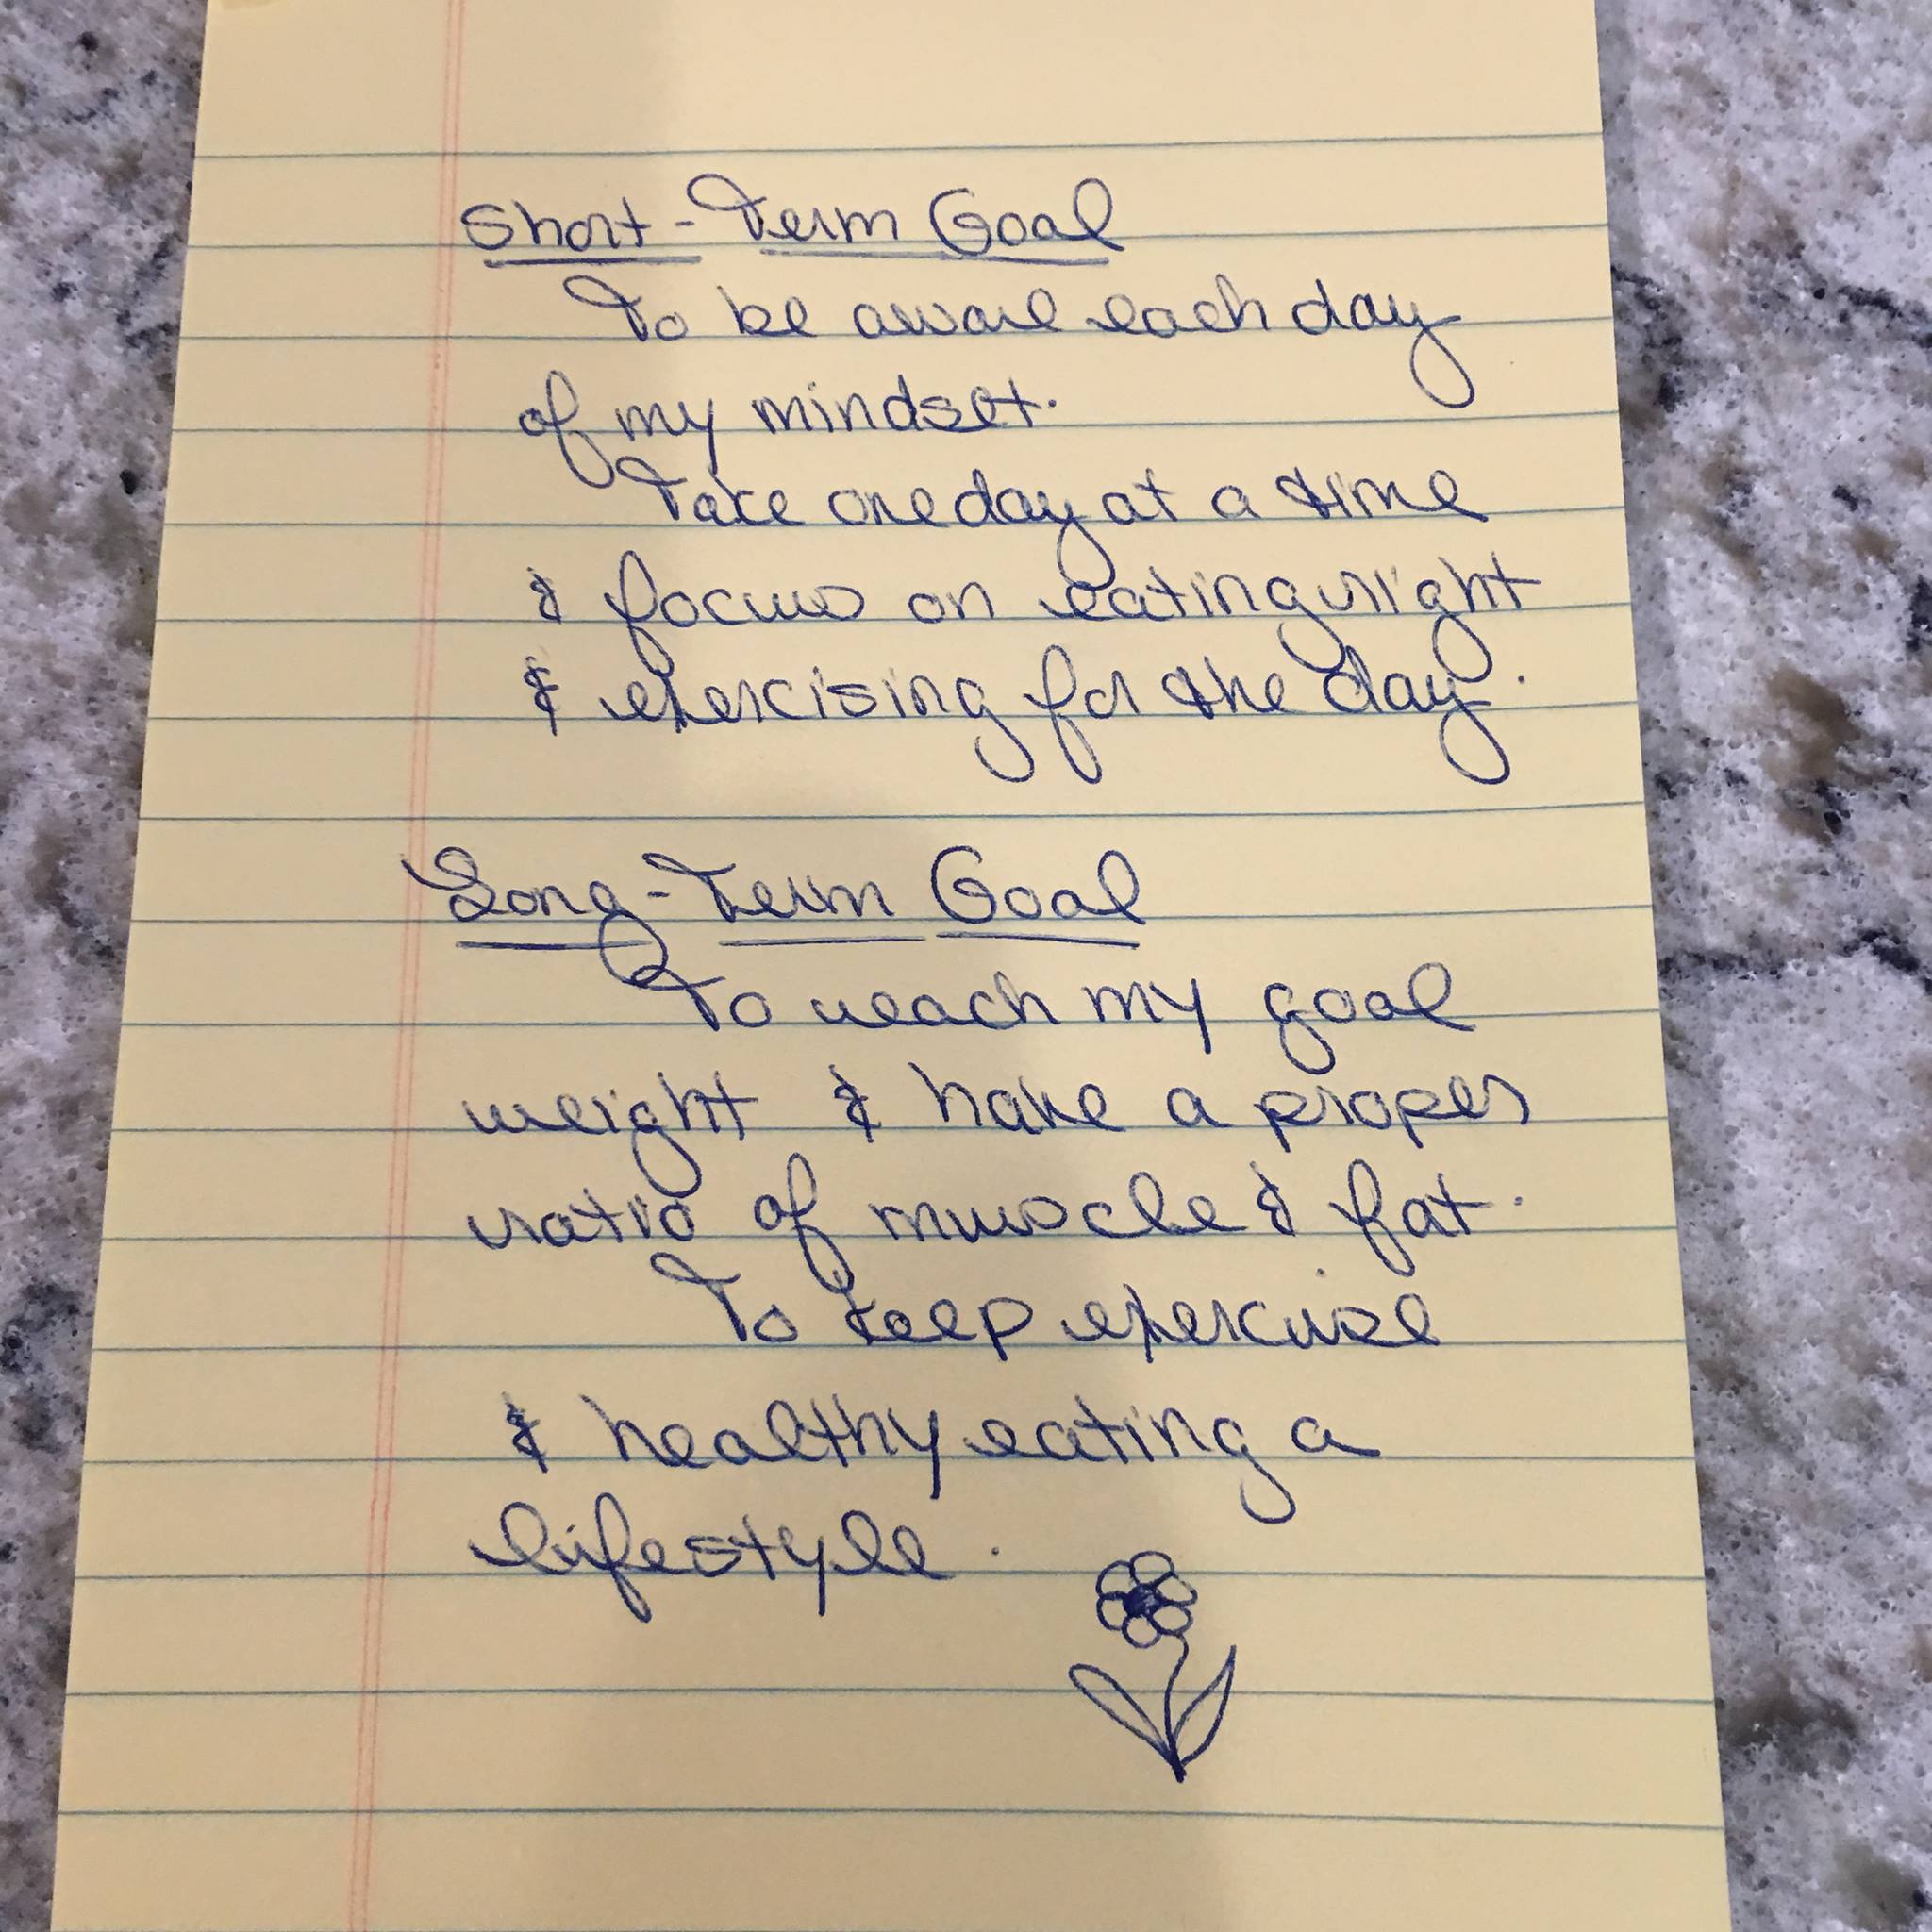 Short-Term Goal
To be aware each day
of my mindset.
Take one day at a time
& focus on eating right
& exercising for the day.
Long-Term Goal
To reach my goal
weight & have a proper
ratio of muscle & fat.
To keep exercise
& healthy eating a
lifestyle.